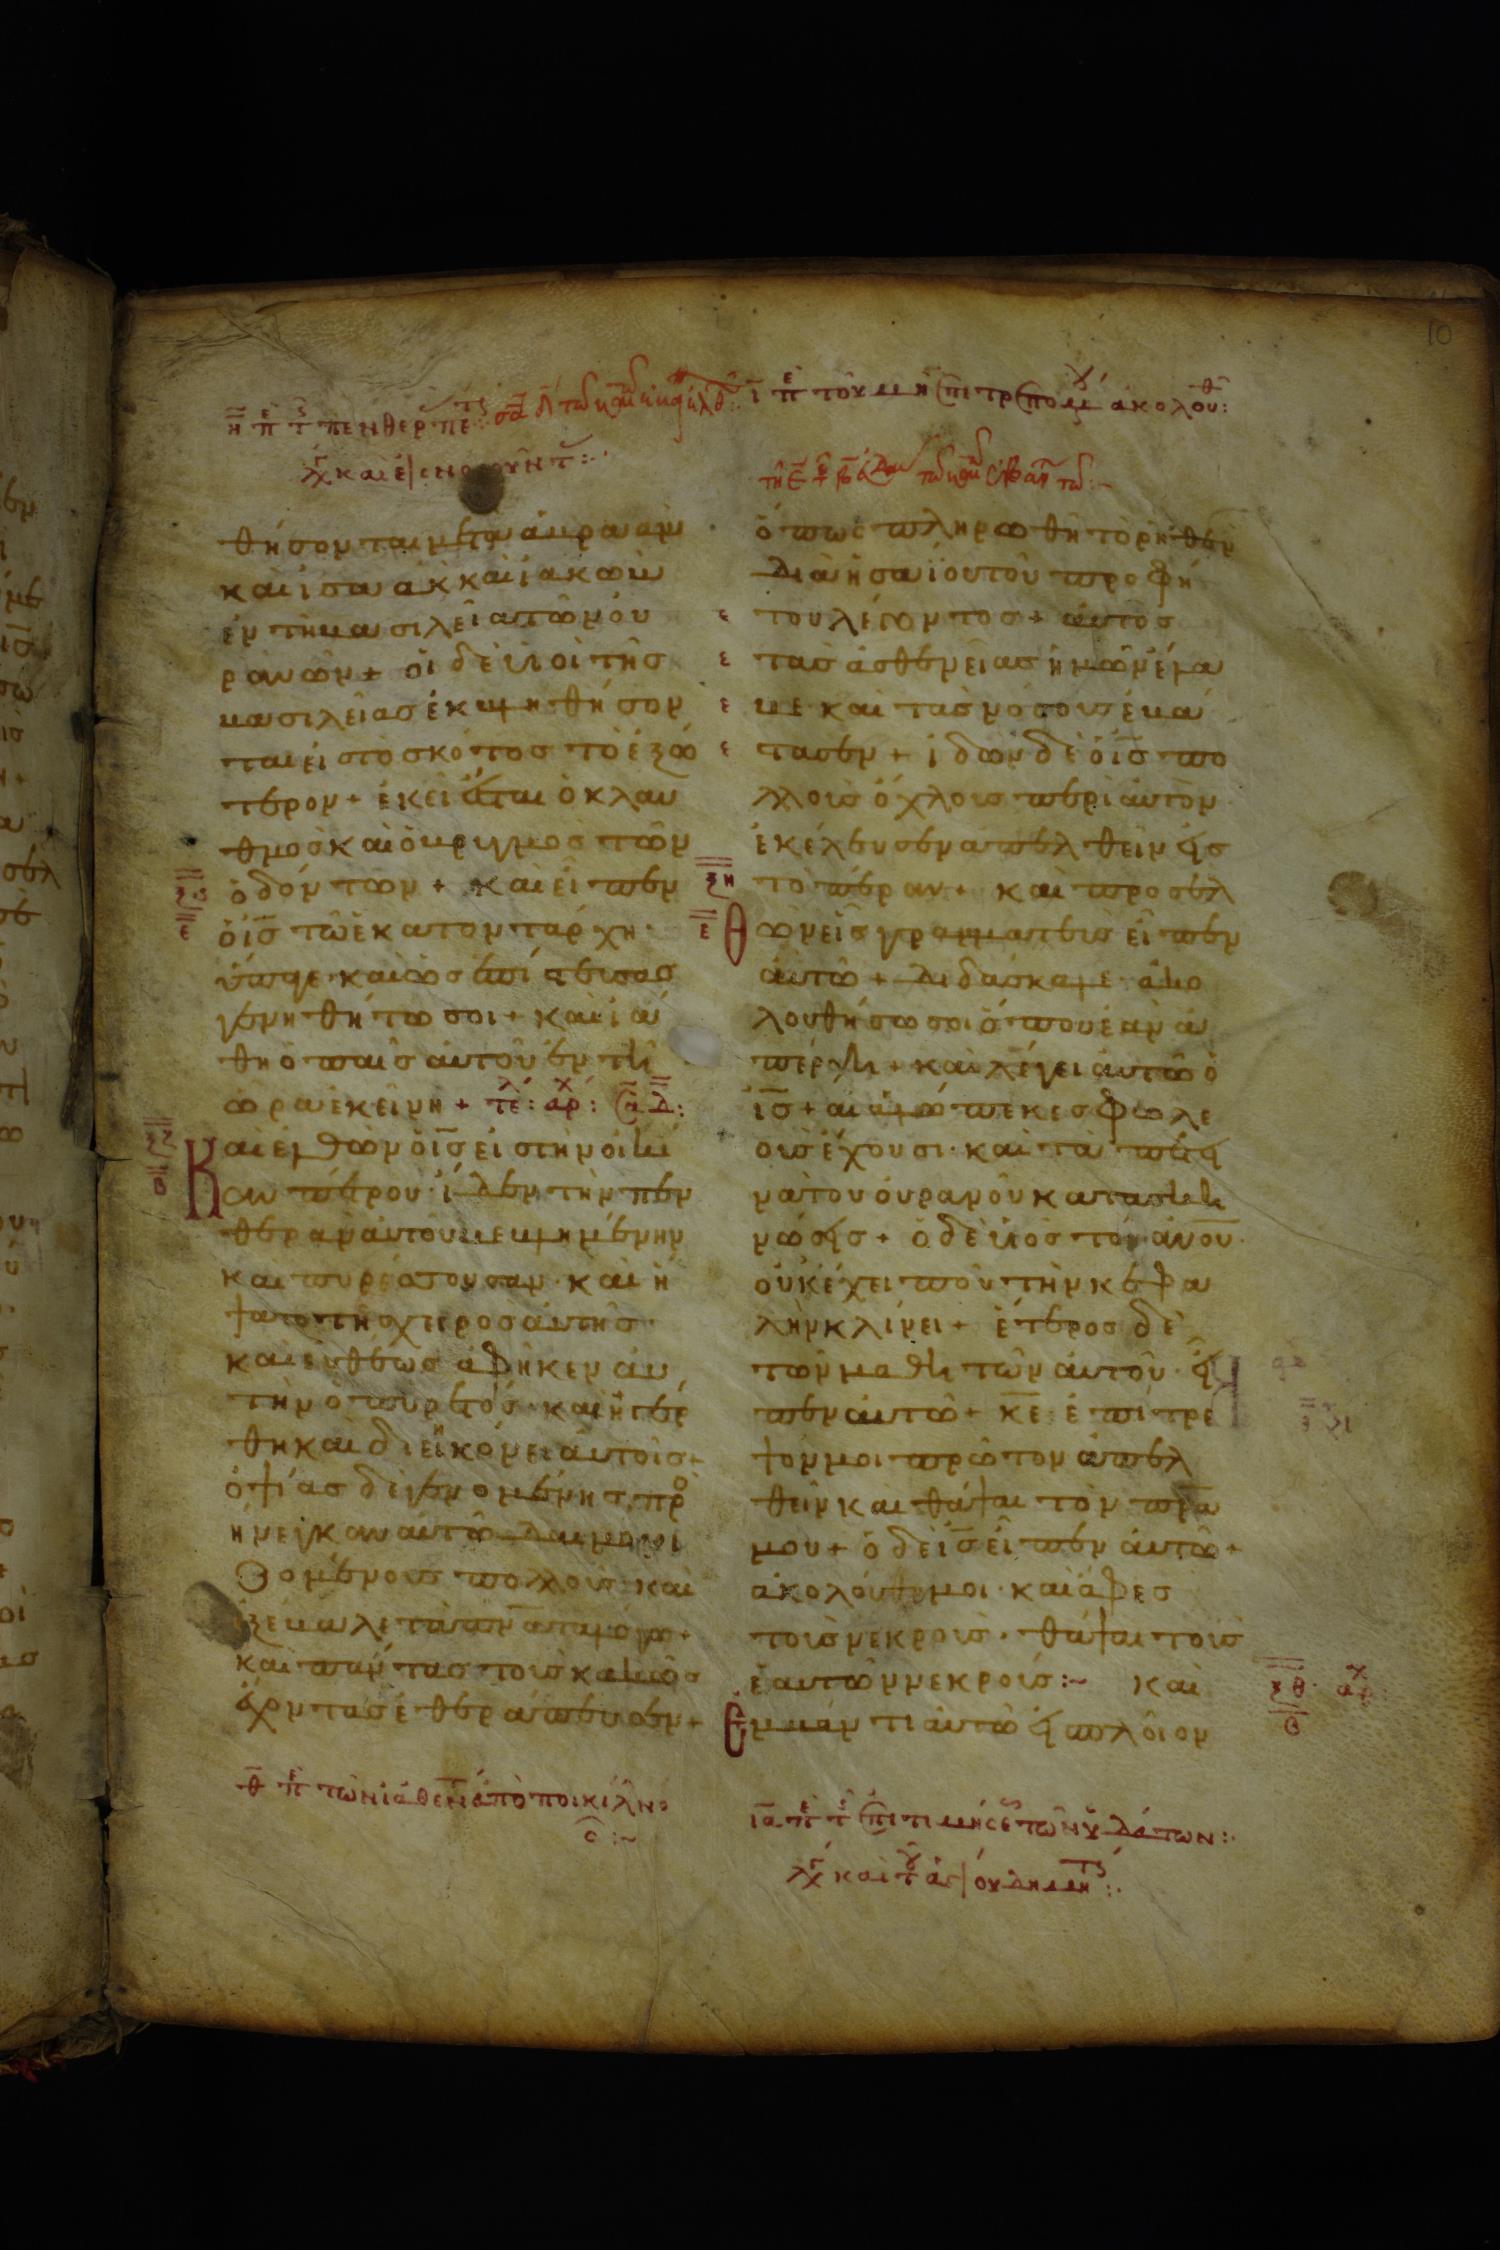 η πε τ πενθερ πετρ
ι πε του μη επιτρεπομ ακολουθ
θήσονται μετα ἀβρααμ
καὶ ἰσαακ καὶ ἰακωβ
ἐν τῆ βασιλεία τῶν οὐ
ρανῶν + οἱ δὲ υἱοὶ τῆσ
βασιλείασ ἐκβληθήσον
ται εἰσ τὸ σκότοσ τὸ ἐξώ
τερον + ἐκεῖ ἔσται ὁ κλαυ
θμοσ καὶ ὁ βρυγμοσ τῶν
ὀδόντων + καὶ εἶπεν
ὁ ισ τῶ ἑκατοντάρχη ·
ὕπαγε · καὶ ὡσ ἐπίστευσασ
γενηθήτω σοι + καὶ ἰά
θη ὁ παῖσ αὐτοῦ ἐν τῆ
ὥρα ἐκείνη + τέλ : ἀρχ :
Και ἐλθὼν ὁ ισ εἰσ τὴν οἰκί
αν πέτρου · ἴδεν τὴν πεν
θερὰν αὐτοῦ βεβλημένην
καὶ πυρέσσουσαν · καὶ ἥ
ψατο τῆσ χειροσ αὐτῆσ ·
καὶ εὐθέωσ ἀφῆκεν αὐ
τὴν ὁ πυρετόσ · καὶ ἠγέρ
θη καὶ διηκόνει αὐτοῖσ +
ὀψίασ δὲ γενομένησ προ
ήνεγκαν αὐτῶ δαιμονι
ζομένουσ πολλουσ · καὶ
ἐξέβαλε τὰ πνατα λόγω +
καὶ πάντασ τοὺσ κακῶσ
ἔχοντασ ἐθεράπευσεν +
θ πε των ιαθεν ἀπὸ ποικίλ νο
σ :~
ὅπωσ πληρωθῆ τὸ ρηθὲν
διὰ ἡσαΐου τοῦ προφή
του λέγοντοσ + αὐτὸσ
τὰσ ἀσθενείασ ἡμῶν ἔλα
βε · καὶ τὰσ νόσουσ ἐβά
στασεν + ἰδὼν δὲ ὁ ισ πο
λλοὺσ ὄχλουσ περὶ αὐτὸν
ἐκέλευσεν ἀπελθεῖν εἰσ
τὸ πέραν + καὶ προσελ
Θὼν εἷσ γραμματεὺσ εἶπεν
αὐτῶ + διδάσκαλε · ἀκο
λουθήσω σοι ὅπου ἐὰν ἀ
πέρχη + καὶ λέγει αὐτῶ ὁ
ισ + αἱ ἀλώπεκεσ φωλε
οὺσ ἔχουσι · καὶ τὰ πετει
νὰ τοῦ οὐρανοῦ κατασκη
νώσεισ + ὁ δὲ υἱὸσ τοῦ ανου ·
οὐκ ἔχει ποῦ τὴν κεφα
λὴν κλίνει + ἕτεροσ δὲ
τῶν μαθητῶν αὐτοῦ · εἶ
πεν αὐτῶ + κε ἐπίτρε
ψόν μοι πρῶτον ἀπελ
θεῖν καὶ θάψαι τὸν πρα
μου + ὁ δὲ ισ εἶπεν αὐτῶ +
ἀκολούθει μοι · καὶ ἄφεσ
τοὺσ νεκροὺσ · θάψαι τοὺσ
ἑαυτῶν νεκρούσ :~ καὶ
Ἐμβάντι αὐτῶ εἰσ πλοῖον
ια πε τ επιτιμήσε τῶν ὑδάτων :